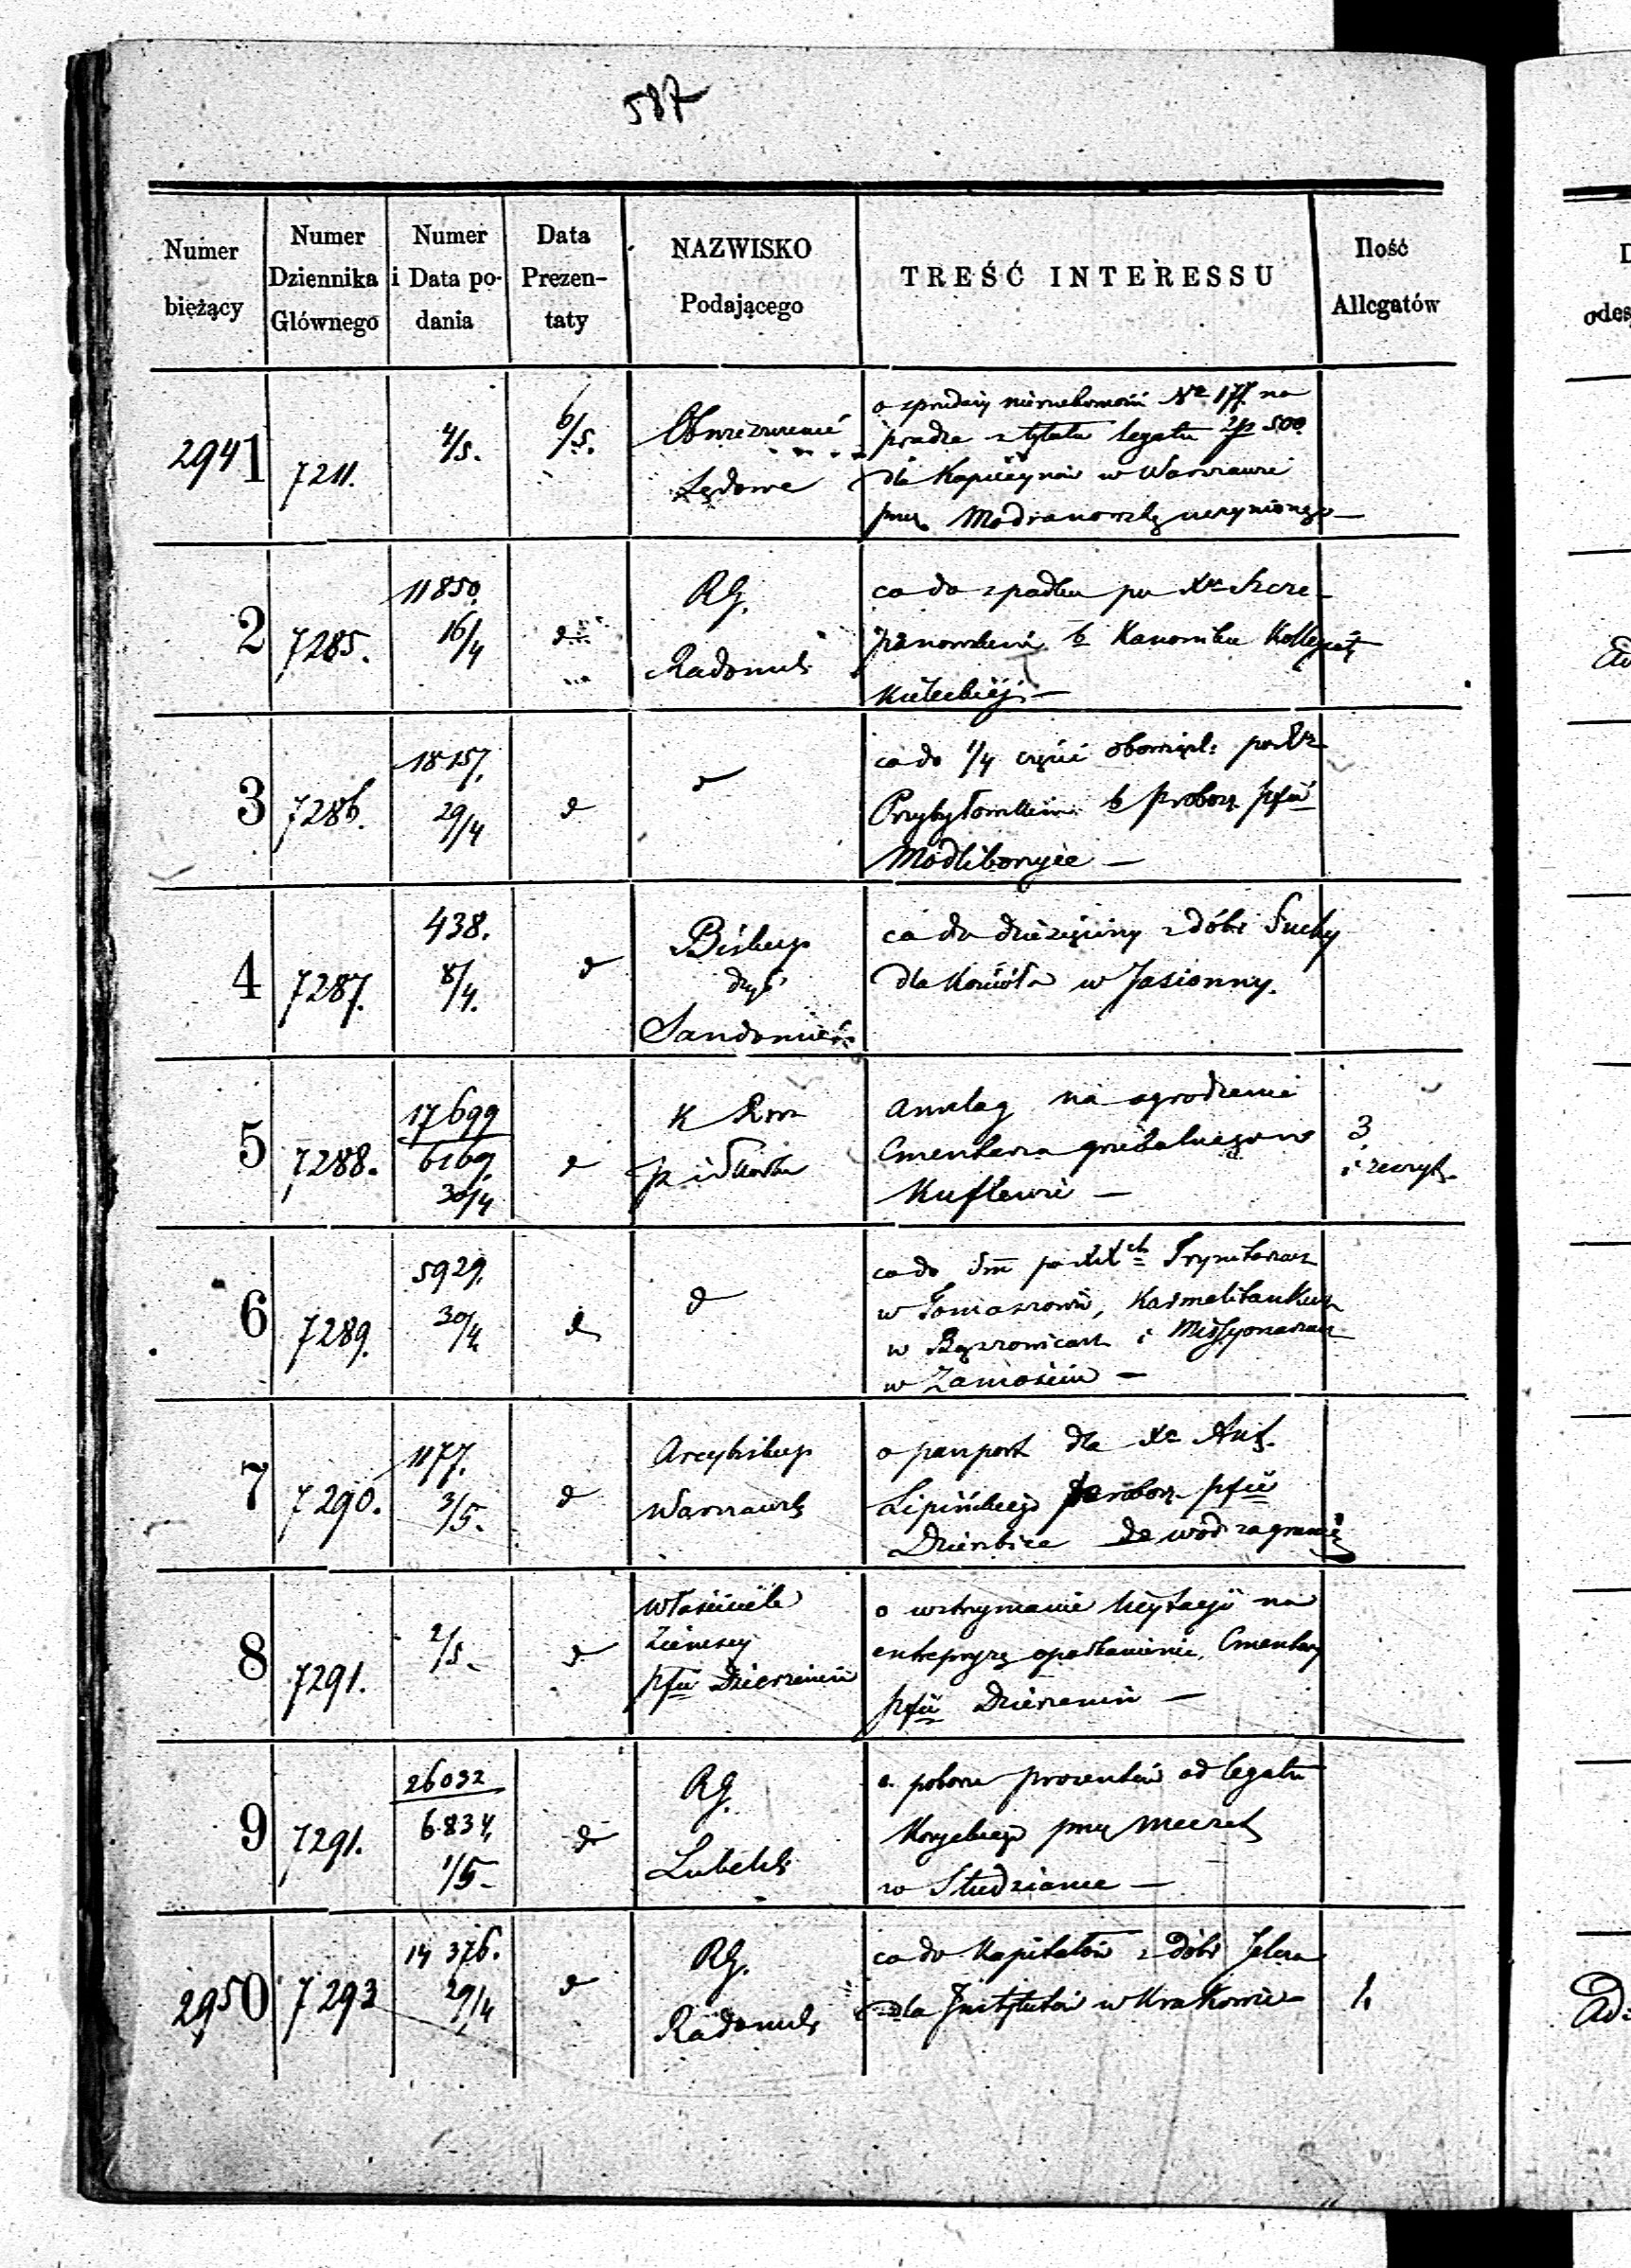 587
Numer bieżący
Numer Dziennika Głównego
Numer i Data podania
Data Prezentaty
NAZWISKO Podającego
TREŚĆ INTERESSU
Ilość Allegatów
2941
7211.
4/5.
6/5.
Obwieszczenie
Sądowe
o sprzedaży nieruchomości No 177. na
Pradze z tytułu legatu zp 500
dla Kapucynów w Warszawie
przez uczynionego —
2
7285.
11850.
16/4
d
RG.
Radomsk
co do spadku po Xu Szcze-
panowskim b Kanoniku Kollegiaty
Kieleckiej —
3
7286.
18157.
29/4
d
d
co do 1/4 części po Xu
Przybyłowskim b probosz. pfii
Modliborzyce —
4
7287.
438.
8/4.
d
Biskup
dyc
Sandomier
co do dziesięciny z dóbr Suchy
dla Kościoła w Jasionny.
5
7288.
17699
6169.
30/4
d
K Rzą
p i Skarbu
na ogrodzenie
Cmentarza grzebalnego w
Kuflewie —
3
i zeszyt.
6
7289.
5929.
30/4
d
d
co do po XXch Trynitarzach
w Tomaszowie, Karmelitankach
w i Missyonarzach
w Zamościu —
7
7290.
1177.
3/5.
d
Arcybiskup
Warszawsk
o paszport dla Xa Ant.
Lipińskiego probosz. pfii
Dzierzbice do wód zagranicę
8
7291.
2/5.
d
Właściciele
Ziemscy
pfii Dzierzenin
o wstrzymanie licytacyi na
entrepryzę oparkanienia Cmentarz
pfii Dzierzenin —
9
7291.
26032
6834,
1/5.
d
RG.
Lubelsk
o poborze procentów od legatu
przez meczet
w Studziance —
2950
7293
14376.
29/4
d
RG.
Radomsk
co do Kapitałów z dóbr
dla Instytutów w Krakowie
1,